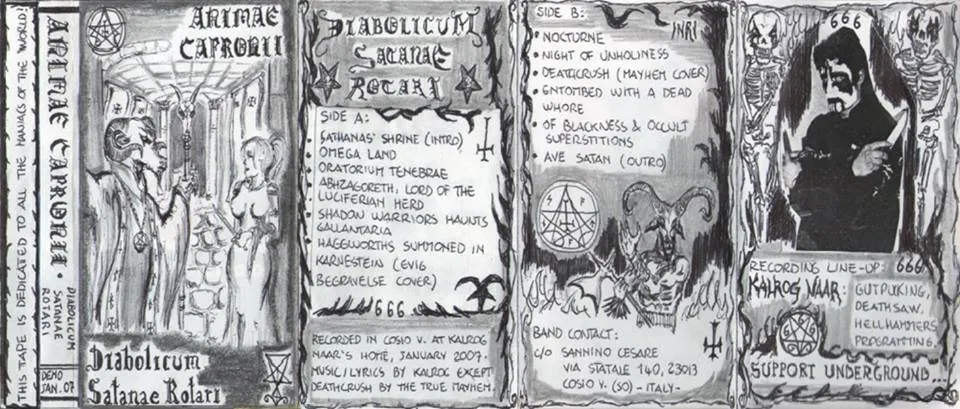 THIS TAPE IS DEDICATED TO ALL THE MANIACS OF THE WORLD!
ANIMAE CAPRONII.
DIABOLICUM
SATANAE
ROTARI
DEMO
JAN. 07
ANIMAE
CAPRONII
Diabolicum
Satanae Rotari
DIABOLICUM
SATANAE
ROTARI
SIDE A:
• SATHANAS' SHRINE (INTRO)
• OMEGA LAND
• ORATORIUM TENEBRAE
• ABHZAGORETH, LORD OF THE
LUCIFERIAN HERD
• SHADOW WARRIORS HAUNTS
GALLANTARIA
• HAGGWORTHS SUMMONED IN
KARNESTEIN (EVIG
BEGRAVELSE COVER)
666
RECORDED IN COSIO V. AT KALROG
NAAR'S HOME, JANUARY 2007.
MUSIC/LYRICS BY KALROG EXCEPT
DEATHCRUSH BY THE TRUE MAYHEM.
SIDE B:
INRI
• NOCTURNE
• NIGHT OF UNHOLINESS
• DEATHCRUSH (MAYHEM COVER)
• ENTOMBED WITH A DEAD
WHORE
• OF BLACKNESS & OCCULT
SUPERSTITIONS
• AVE SATAN (OUTRO)
BAND CONTACT:
C/O SANNINO CESARE
VIA STATALE 140, 23013
COSIO V. (SO) - ITALY-
666
RECORDING LINE-UP: 666
KALROG NAAR: GUTPUKING,
DEATHSAW,
HELLHAMMERS
PROGRAMMING.
SUPPORT UNDERGROUND...